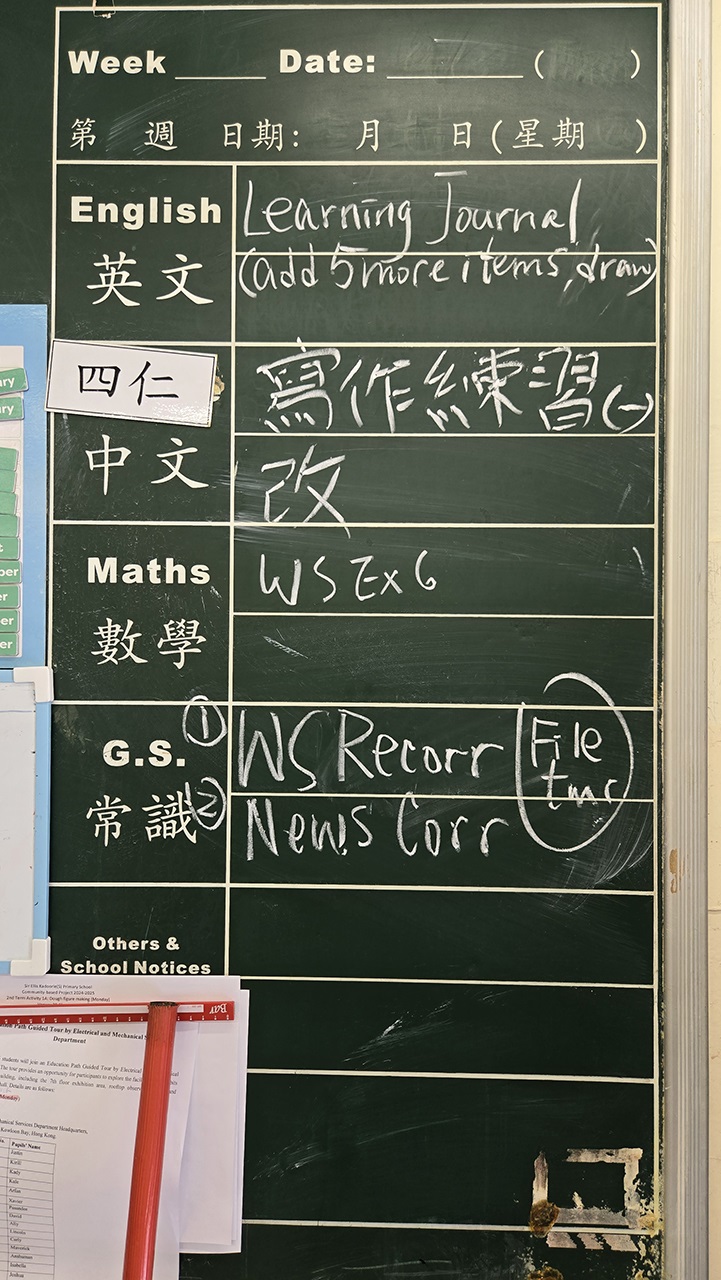 Week ______ Date: _________ ( )
第 週 日期: 月 日(星期 )
English
英文
Learning Journal
(add 5 more items, draw)
四仁
中文
寫作練習(一)
改
Maths
數學
WS Ex 6
G.S.
常識
① WS Recorr
② News Corr
File
tmr
Others &
School Notices
Sir Ellis Kadoorie(S) Primary School
Community-based Project 2024-2025
2nd Term Activity 1A: Dough figure making (Monday)
Path Guided Tour by Electrical and Mechanical
Department
students will join an Education Path Guided Tour by Electrical
The tour provides an opportunity for participants to explore the
including the 7th floor exhibition area, rooftop
Details are as follows:
Monday)
Services Department Headquarters,
Kowloon Bay, Hong Kong
Pupils' Name
Kirill
Kady
David
Ally
Curly
Maverick
Isabella
Joshua